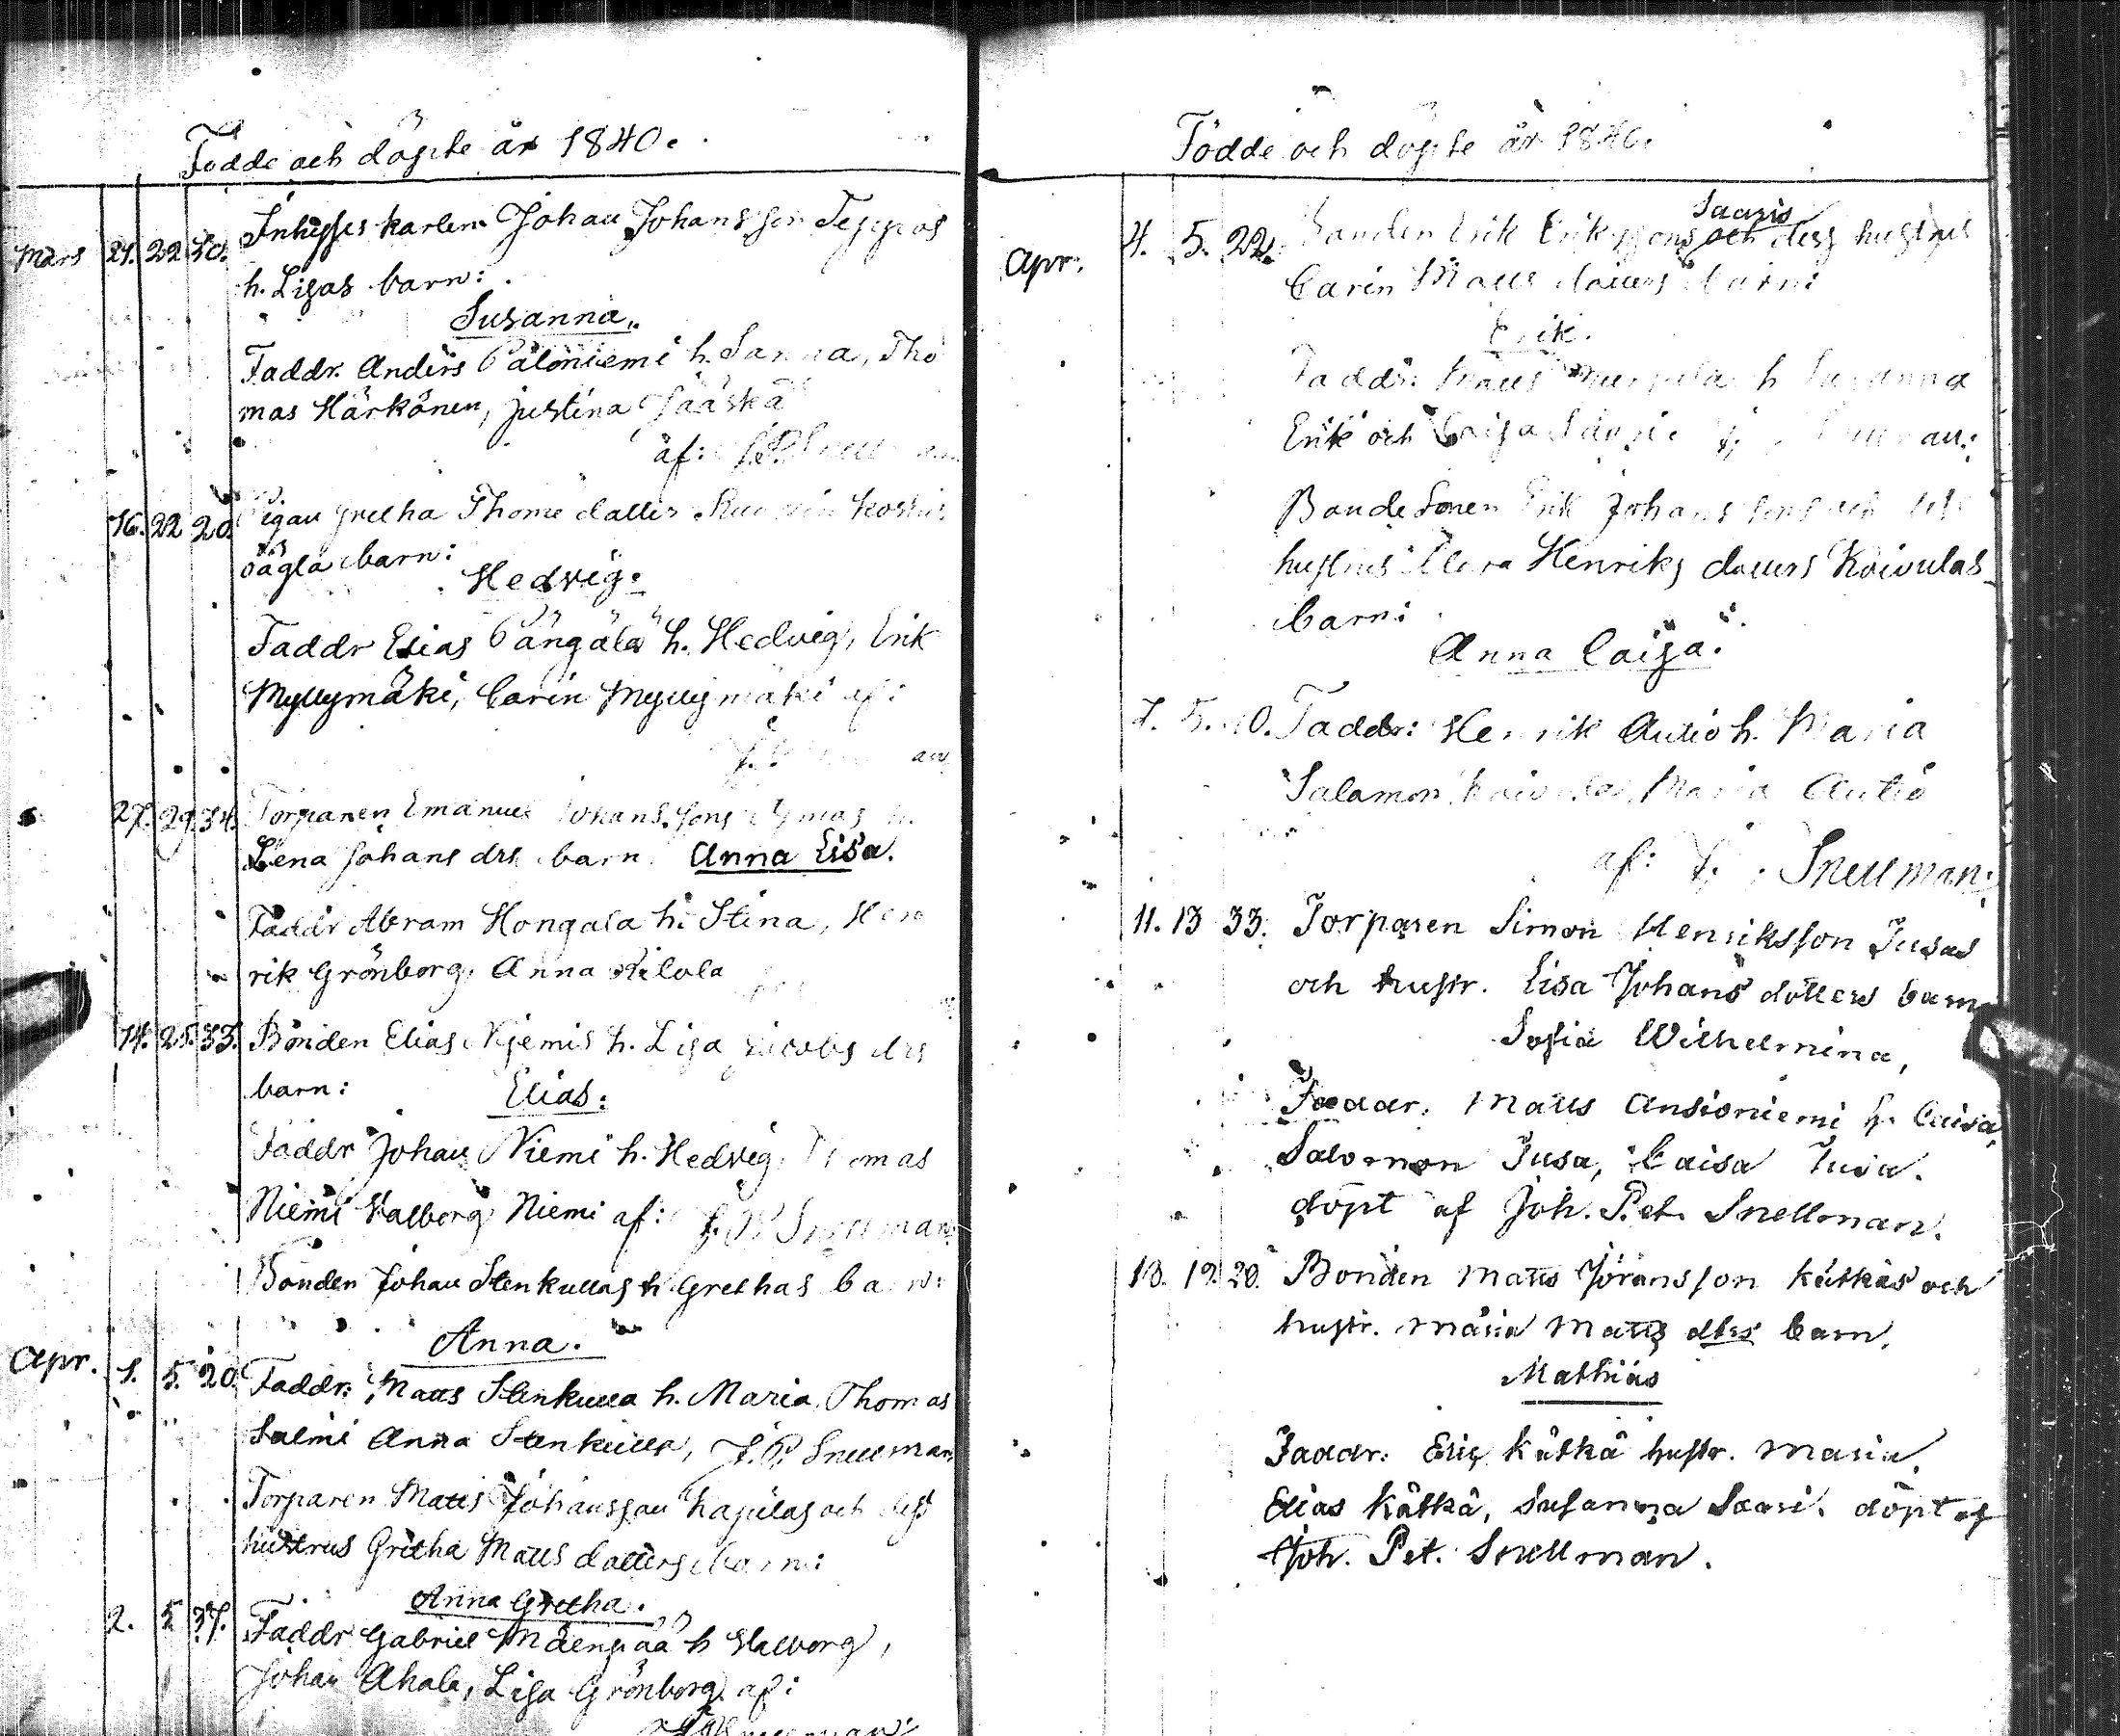 Födde och döpte år 1840.
Mars 21. 22 30. Inhyses karlen Johan Johansson Teppos
h. Lisas barn:
Susanna.
Faddr. Anders Paloniemi h. Sanna, Tho
mas Härkönen, Justina Jääskä
af: J. P. Snellman
16. 22 20. Pigan Gretha Thomé dotters
oägta barn:
Hedvig.
Faddr Elias Pängälä h. Hedvig, Erik
Myllymäki, Carin Myllymäki af:
27. 29. 34. Torparen Emanuel Johanssons
Lena Johans drs barn. Anna Lisa.
Faddr Abram Hongala h. Stina, Hen
rik Grönborg, Anna
14. 25. 33. Bonden Elias Niemis h. Lisa Jacobs drs
barn: Elias:
Faddr Johan Niemi h. Hedvig, Thomas
Niemi Walborg Niemi af: J. P. Snellman
Bonden Johan Stenkullas h Grethas barn:
Anna.
Apr. 1. 5. 20. Faddr: Matts Stenkulla h. Maria, Thomas
Salmi Anna Stenkulla, J. P. Snellman
Torparen Matts Johansson och dess
hustrus Gretha Matts dotters barn:
Anna Gretha.
2. 5 37. Faddr Gabriel Mäenpää h Walborg,
Johan Ahola, Lisa Grönborg af:
Födde och döpte år 1840.
Saaris
Apr. 4. 5. 22. Bonden Erik Erikssons och dess hustrus
Carin Matts dotters barn:
Erik.
Faddr: Matts h Susanna
Erik och Caisa
Bonde Sonen Erik Johanssons och dess
hustrus Henriks dotters Koivulas
barn:
Anna Caisa.
7. 5. 40. Faddr: Henrik Autio h. Maria
Salamon Koivula, Maria Autio
af: J. Snellman
11. 13 33. Torparen Simon Henriksson Jusas
och hustr. Lisa Johans dotters barn
Sofia Wilhelmina,
Faddr. Matts Ansioniemi h. Caisa,
Salomon Jusa, Caisa Jusa.
döpt af Joh. Pet. Snellman.
18. 19. 20. Bonden Matts Jöransson Kätkäs och
hustr. Maria Matts dtrs barn.
Mathias
Faddr. Eric Kätkä hustr. Maria,
Elias Kätkä, Susanna Saari. döpt af
Joh. Pet. Snellman.